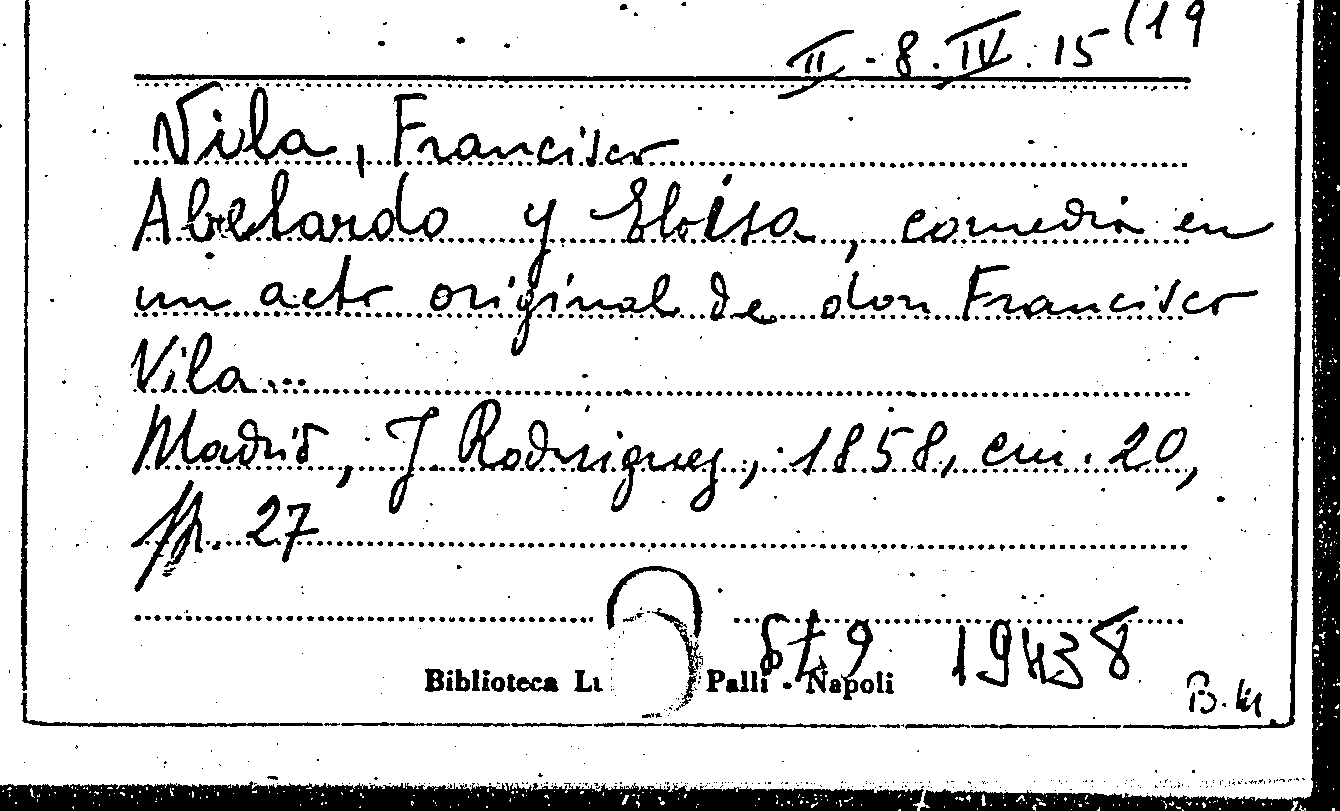 II - 8. IV. 15 (19
Vila, Francisco
Abelardo y Eloisa, comedia en
un acto original de don Francisco
Vila...
Madrid, J. Rodriguez, 1858, cm. 20,
pp. 27
19438
Biblioteca Lu Palli - Napoli
B. M.